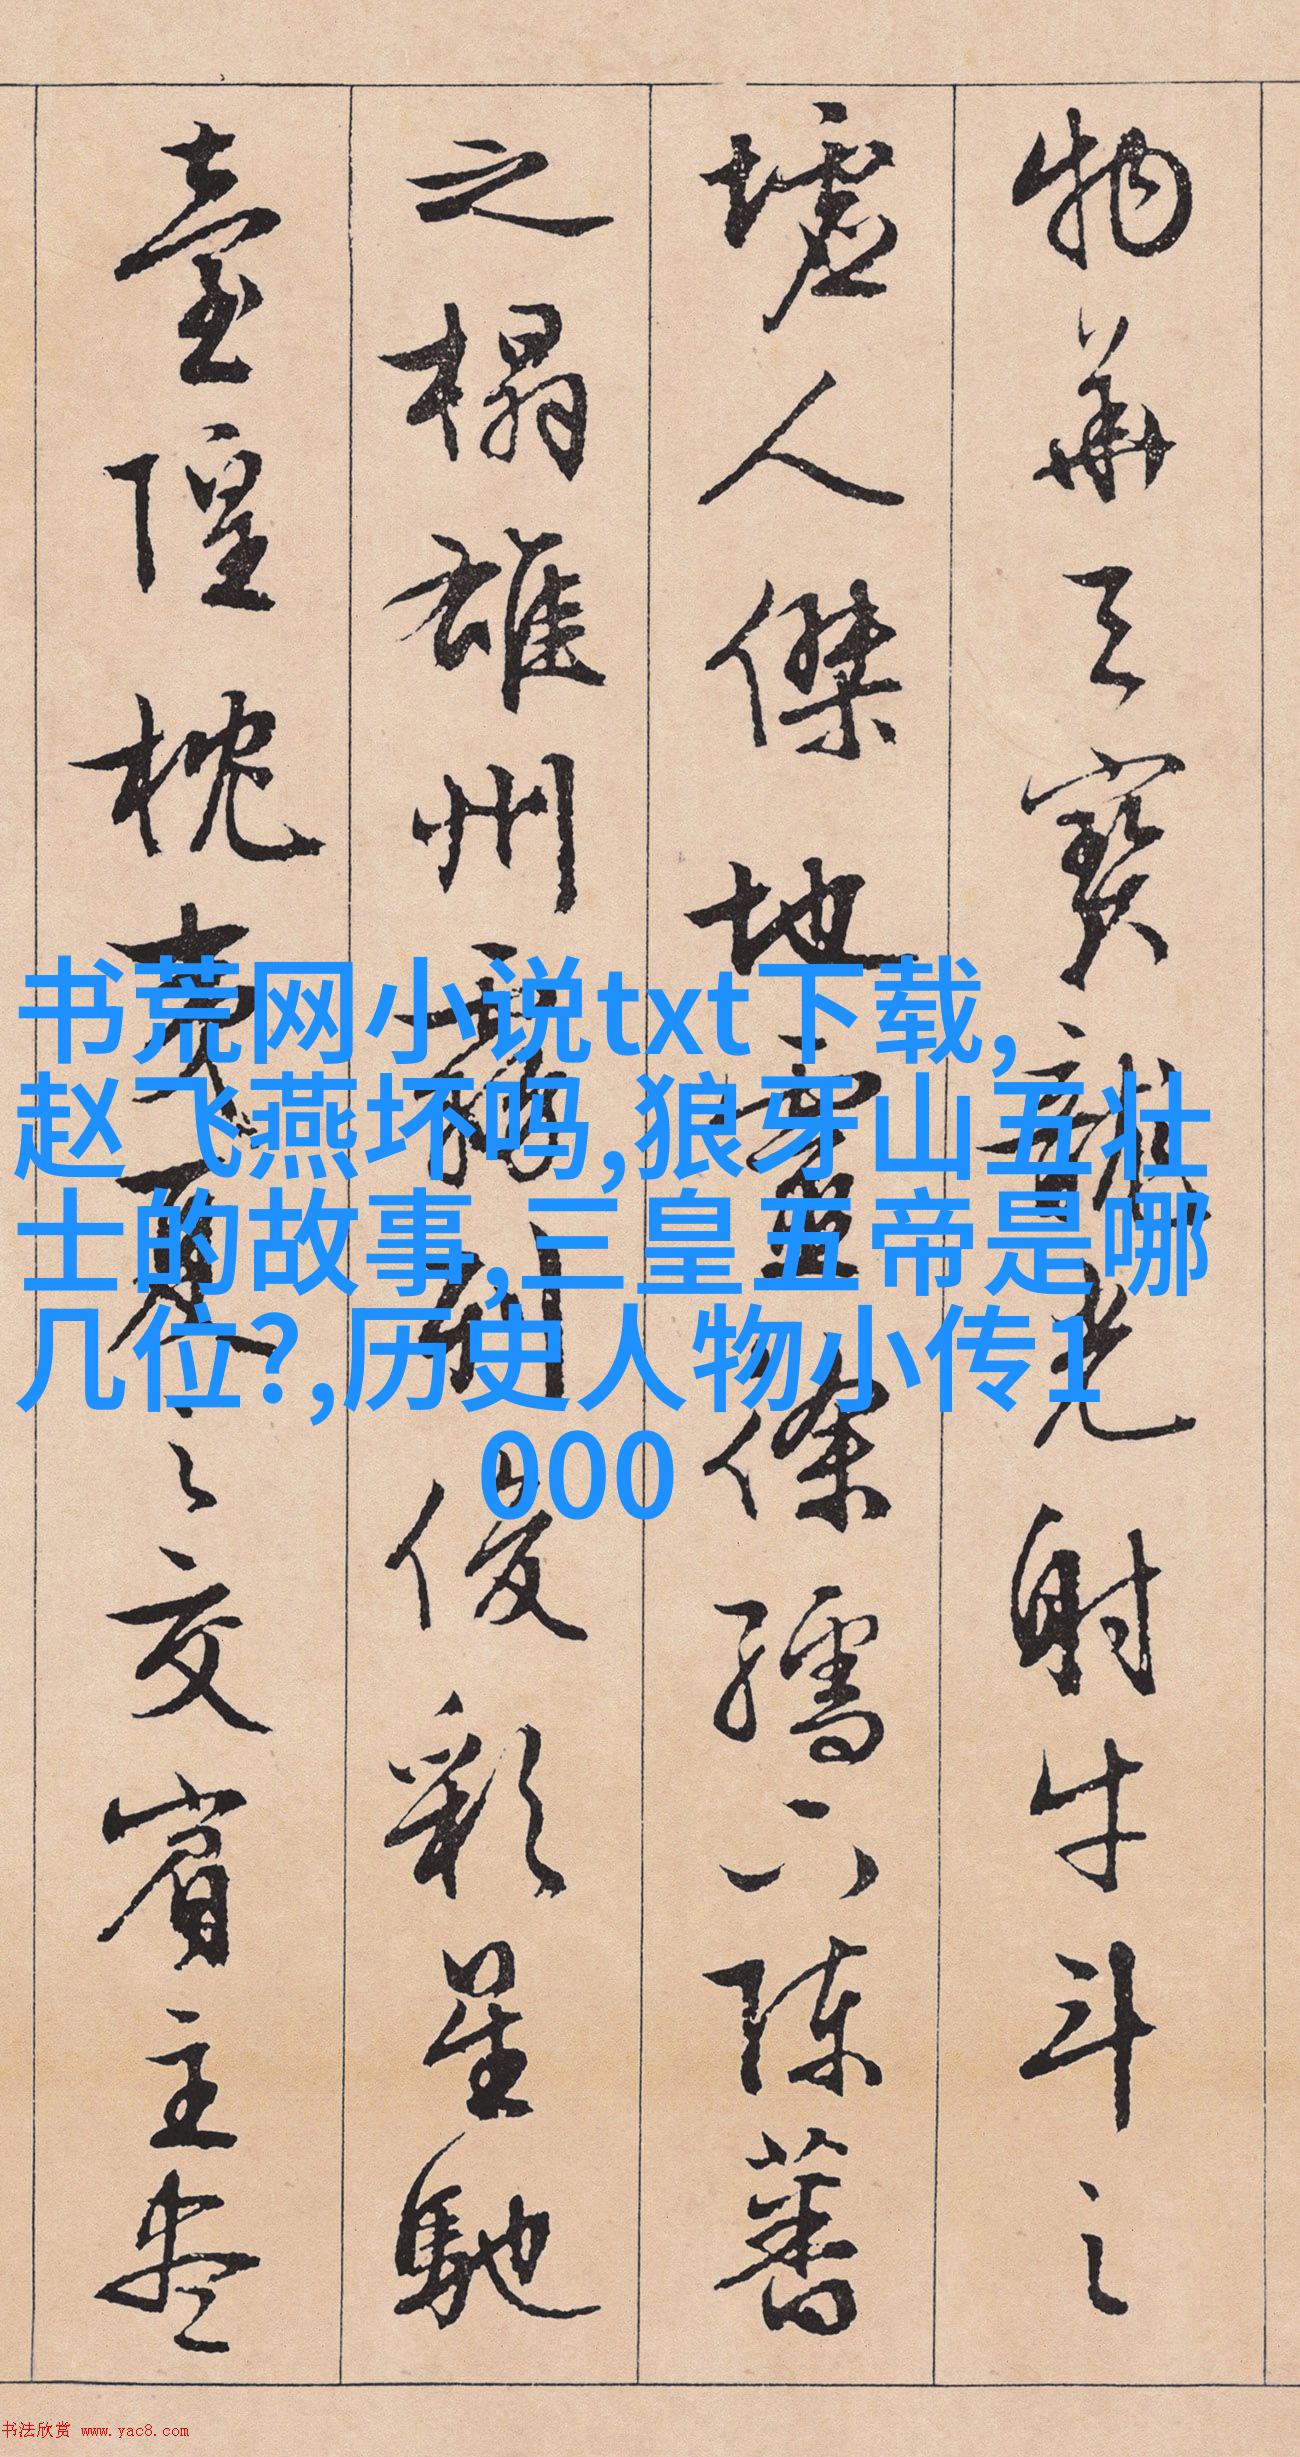 物华天宝龍光射牛斗之
墟人傑地靈徐孺下陈蕃
之榻雄州霧列俊彩星馳
臺隍枕夷夏之交賓主盡
书荒网小说txt下载,
赵飞燕坏吗,狼牙山五壮
士的故事,三皇五帝是哪
几位?,历史人物小传1
000
书法欣赏 www.yac8.com